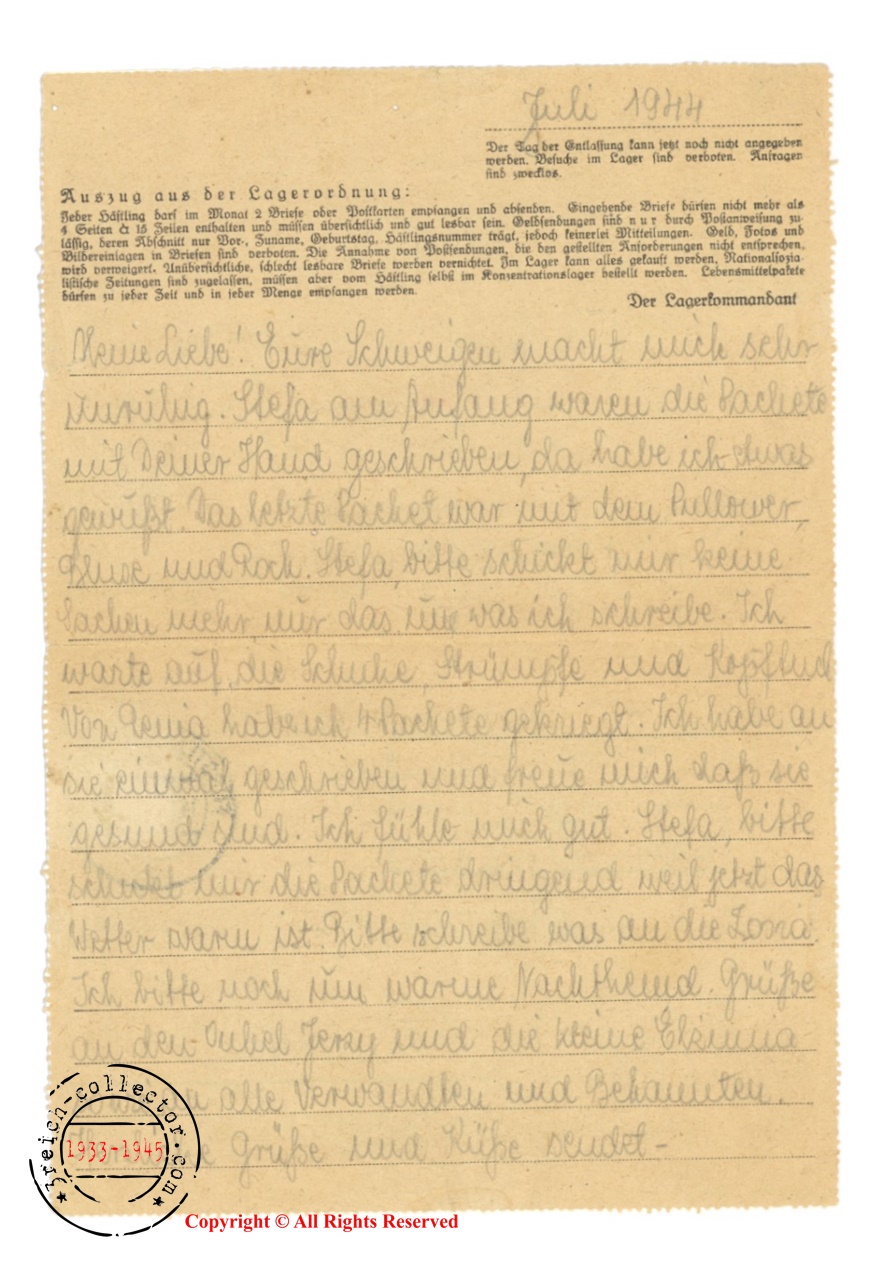 Juli 1944
Der Tag der Entlassung kann jetzt noch nicht angegeben
werden. Besuche im Lager sind verboten. Anfragen
sind zwecklos.
Auszug aus der Lagerordnung:
Jeder Häftling darf im Monat 2 Briefe oder Postkarten empfangen und absenden. Eingehende Briefe dürfen nicht mehr als
4 Seiten à 15 Zeilen enthalten und müssen übersichtlich und gut lesbar sein. Geldsendungen sind nur durch Postanweisung zu-
lässig, deren Abschnitt nur Vor-, Zuname, Geburtstag, Häftlingsnummer trägt, jedoch keinerlei Mitteilungen. Geld, Fotos und
Bildereinlagen in Briefen sind verboten. Die Annahme von Postsendungen, die den gestellten Anforderungen nicht entsprechen,
wird verweigert. Unübersichtliche, schlecht lesbare Briefe werden vernichtet. Im Lager kann alles gekauft werden. Nationalsozia-
listische Zeitungen sind zugelassen, müssen aber vom Häftling selbst im Konzentrationslager bestellt werden. Lebensmittelpakete
dürfen zu jeder Zeit und in jeder Menge empfangen werden.
Der Lagerkommandant
Meine Liebe! Eure Schweigen macht mich sehr
unruhig. Stefa am Anfang waren die Pachete
mit Deiner Hand geschrieben, da habe ich etwas
gewußt. Das letzte Pachet war mit dem Pullower,
Bluse und Roch. Stefa, bitte schickt mir keine
Sachen mehr, nur das, um was ich schreibe. Ich
warte auf die Schuhe, Strümpfe und Kopftuch
Von Genia habe ich 4 Pachete gekriegt. Ich habe an
sie einmal geschrieben und freue mich daß sie
gesund sind. Ich fühle mich gut. Stefa, bitte
schicket mir die Pachete dringend weil jetzt das
Wetter warm ist. Bitte schreibe was an die Lona.
Ich bitte noch um warme Nachthemd. Grüße
an den Onkel Jerzy und die kleine
alle Verwandten und Bekannten.
Grüße und Küße sendet-
3reich-collector.com
1933-1945
Copyright © All Rights Reserved